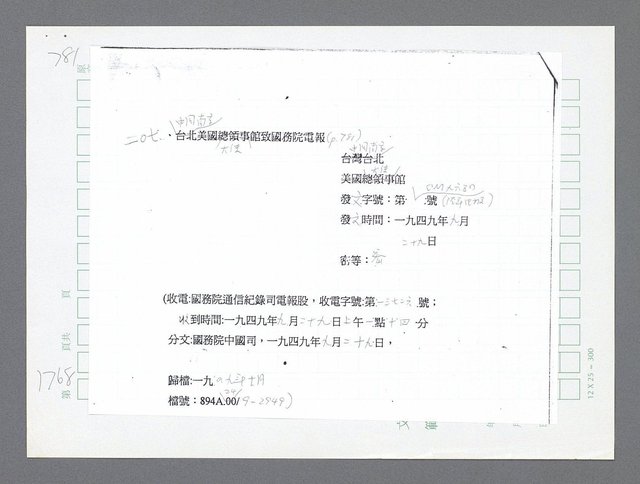 781
中國南京
二〇七、台北美國總領事館致國務院電報(p.781)
大使
中國南京
台灣台北
大使
美國總領事館
發文字號：第 號
發文時間：一九四九年九月
二十九日
密等：密
(收電:國務院通信紀錄司電報股，收電字號:第一三七二六號；
收到時間:一九四九年九月二十九日上午一點十四分
分文:國務院中國司，一九四九年九月二十九日，
歸檔:一九八九年十月
檔號：894A.00/9-2949)
頁
頁共
1768
第
12 X 25 = 300